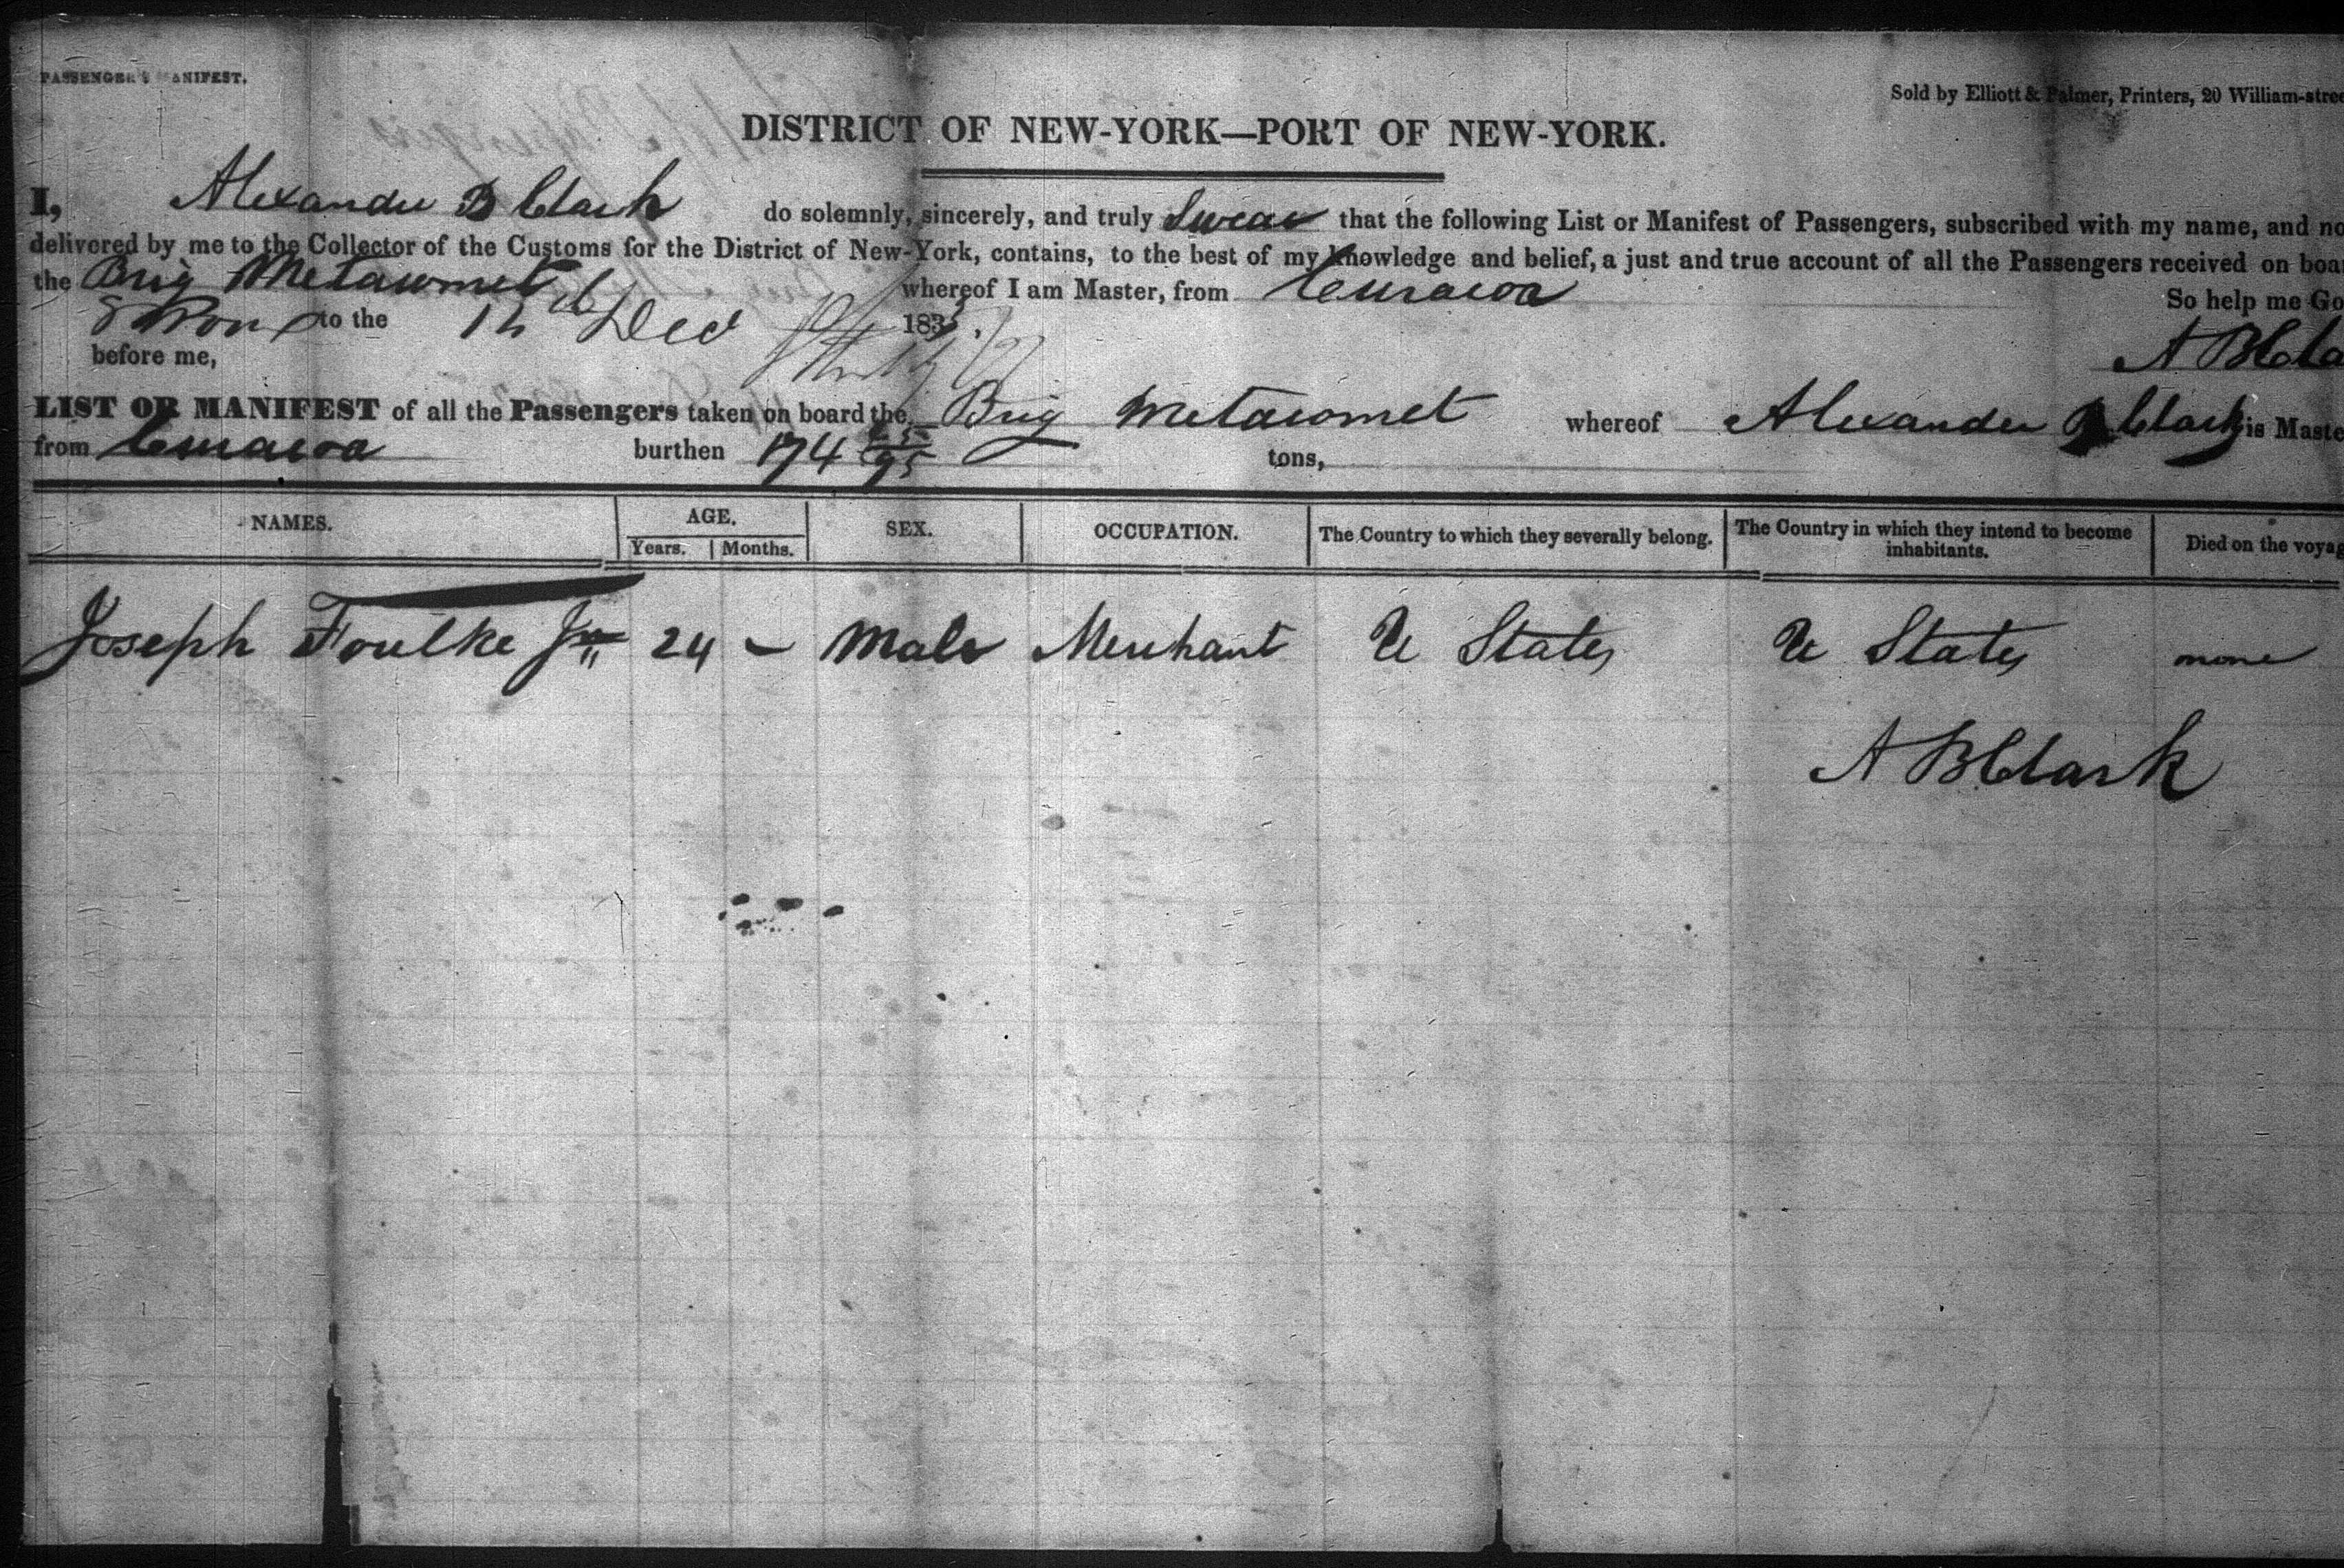 PASSENGER'S MANIFEST.
Sold by Elliott & Palmer, Printers, 20 William-stree
DISTRICT OF NEW-YORK—PORT OF NEW-YORK.
I, Alexander B Clark do solemnly, sincerely, and truly Swear that the following List or Manifest of Passengers, subscribed with my name, and no
delivered by me to the Collector of the Customs for the District of New-York, contains, to the best of my knowledge and belief, a just and true account of all the Passengers received on boar
the Brig Metacomet whereof I am Master, from Curacoa
So help me Go
to the Dec 183
before me,
A B Cla
LIST OR MANIFEST of all the Passengers taken on board the Brig Metacomet whereof Alexander B Clark is Maste
from Curacoa burthen 174 tons,
NAMES. AGE. SEX. OCCUPATION. The Country to which they severally belong. The Country in which they intend to become inhabitants. Died on the voyag
Years. Months.
Joseph Foulke Jr 24 – Male Merchant U States U States none
A B Clark